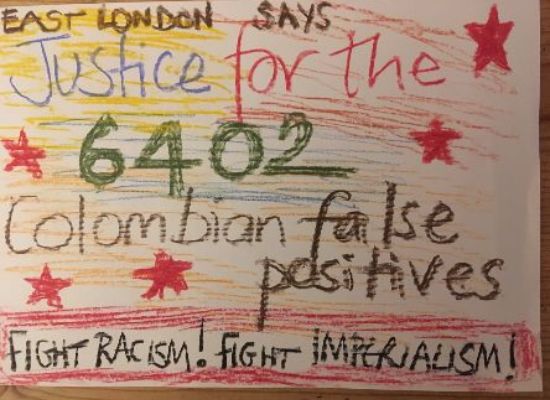 EAST LONDON SAYS
Justice for the
6402
Colombian false
positives
FIGHT RACISM! FIGHT IMPERIALISM!